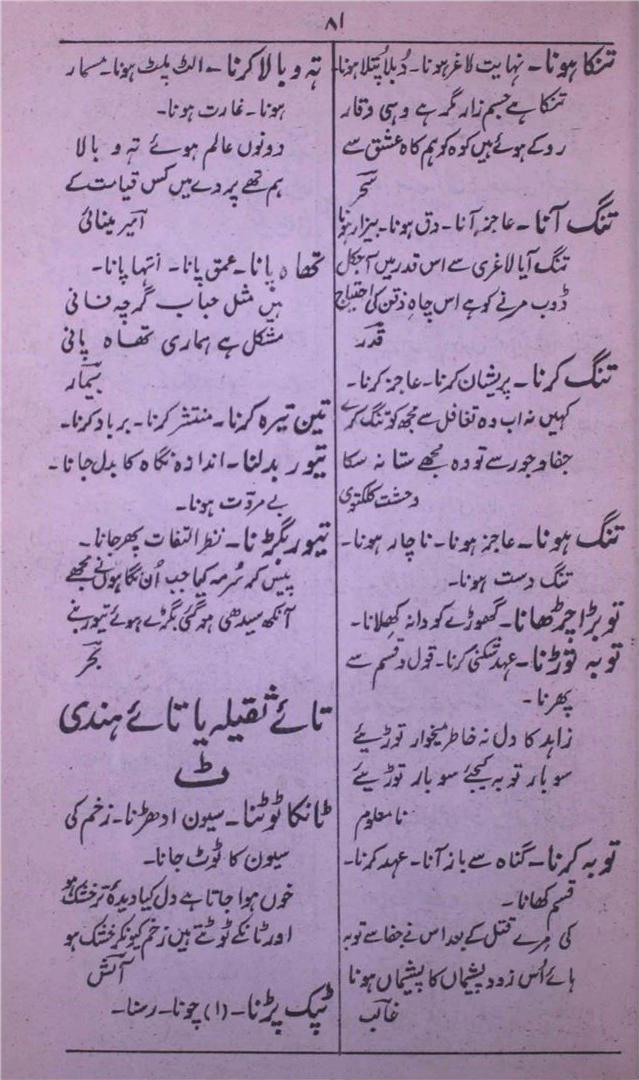 ۸۱
تنکا ہونا۔ نہایت لاغر ہونا۔ دُبلا پتلا ہونا
تنکا ہے جسم زار مگر ہے وہی وقار
روکے ہوئے ہیں کوہ کو ہم کاہ عشق سے
سحر
تنگ آنا۔ عاجز آنا۔ دق ہونا۔ بیزار ہونا
تنگ آیا لاغری سے اس قدر میں آجکل
ڈوب مرنے کو ہے اس چاہ ذقن کی احتیاج
قدر
تنگ کرنا۔ پریشان کرنا۔ عاجز کرنا۔
کہیں نہ اب وہ تغافل سے مجھ کو تنگ کرے
جفا و جور سے تو وہ مجھے ستا نہ سکا
وحشت کلکتوی
تنگ ہونا۔ عاجز ہونا۔ ناچار ہونا۔
تنگ دست ہونا۔
توبڑا چڑھانا۔ گھوڑے کو دانہ کھلانا۔
توبہ توڑنا۔ عہد شکنی کرنا۔ قول و قسم سے
پھرنا۔
زاہد کا دل نہ خاطر میخوار توڑیئے
سو بار توبہ کیجئے سو بار توڑیئے
نامعلوم
توبہ کرنا۔ گناہ سے باز آنا۔ عہد کرنا۔
قسم کھانا۔
کی مرے قتل کے بعد اس نے جفا سے توبہ
ہائے اُس زود پشیماں کا پشیماں ہونا
غالب
تہ و بالا کرنا۔ الٹ پلٹ ہونا۔ مسمار
ہونا۔ غارت ہونا۔
دونوں عالم ہوئے تہ و بالا
ہم تھے پردے میں کس قیامت کے
امیر مینائی
تھاہ پانا۔ عمق پانا۔ انتہا پانا۔
ہیں مثل حباب گرچہ فانی
مشکل ہے ہماری تھاہ پانی
بیمار
تین تیرہ کرنا۔ منتشر کرنا۔ برباد کرنا۔
تیور بدلنا۔ اندازہ نگاہ کا بدل جانا۔
بے مروت ہونا۔
تیور بگڑنا۔ نظر التفات پھر جانا۔
پیس کر سُرمہ کیا جب اُن نگاہوں نے مجھے
آنکھ سیدھی ہو گئی بگڑے ہوئے تیور بنے
بحر
تائے ثقیلہ یا تائے ہندی
ٹ
ٹانکا ٹوٹنا۔ سیون ادھڑنا۔ زخم کی
سیون کا ٹوٹ جانا۔
خوں ہوا جاتا ہے دل کیا دیدۂ تر خشک ہو
اور ٹانکے ٹوٹتے ہیں زخم کیونکر خشک ہو
آتش
ٹپک پڑنا۔ (۱) چونا۔ رسنا۔